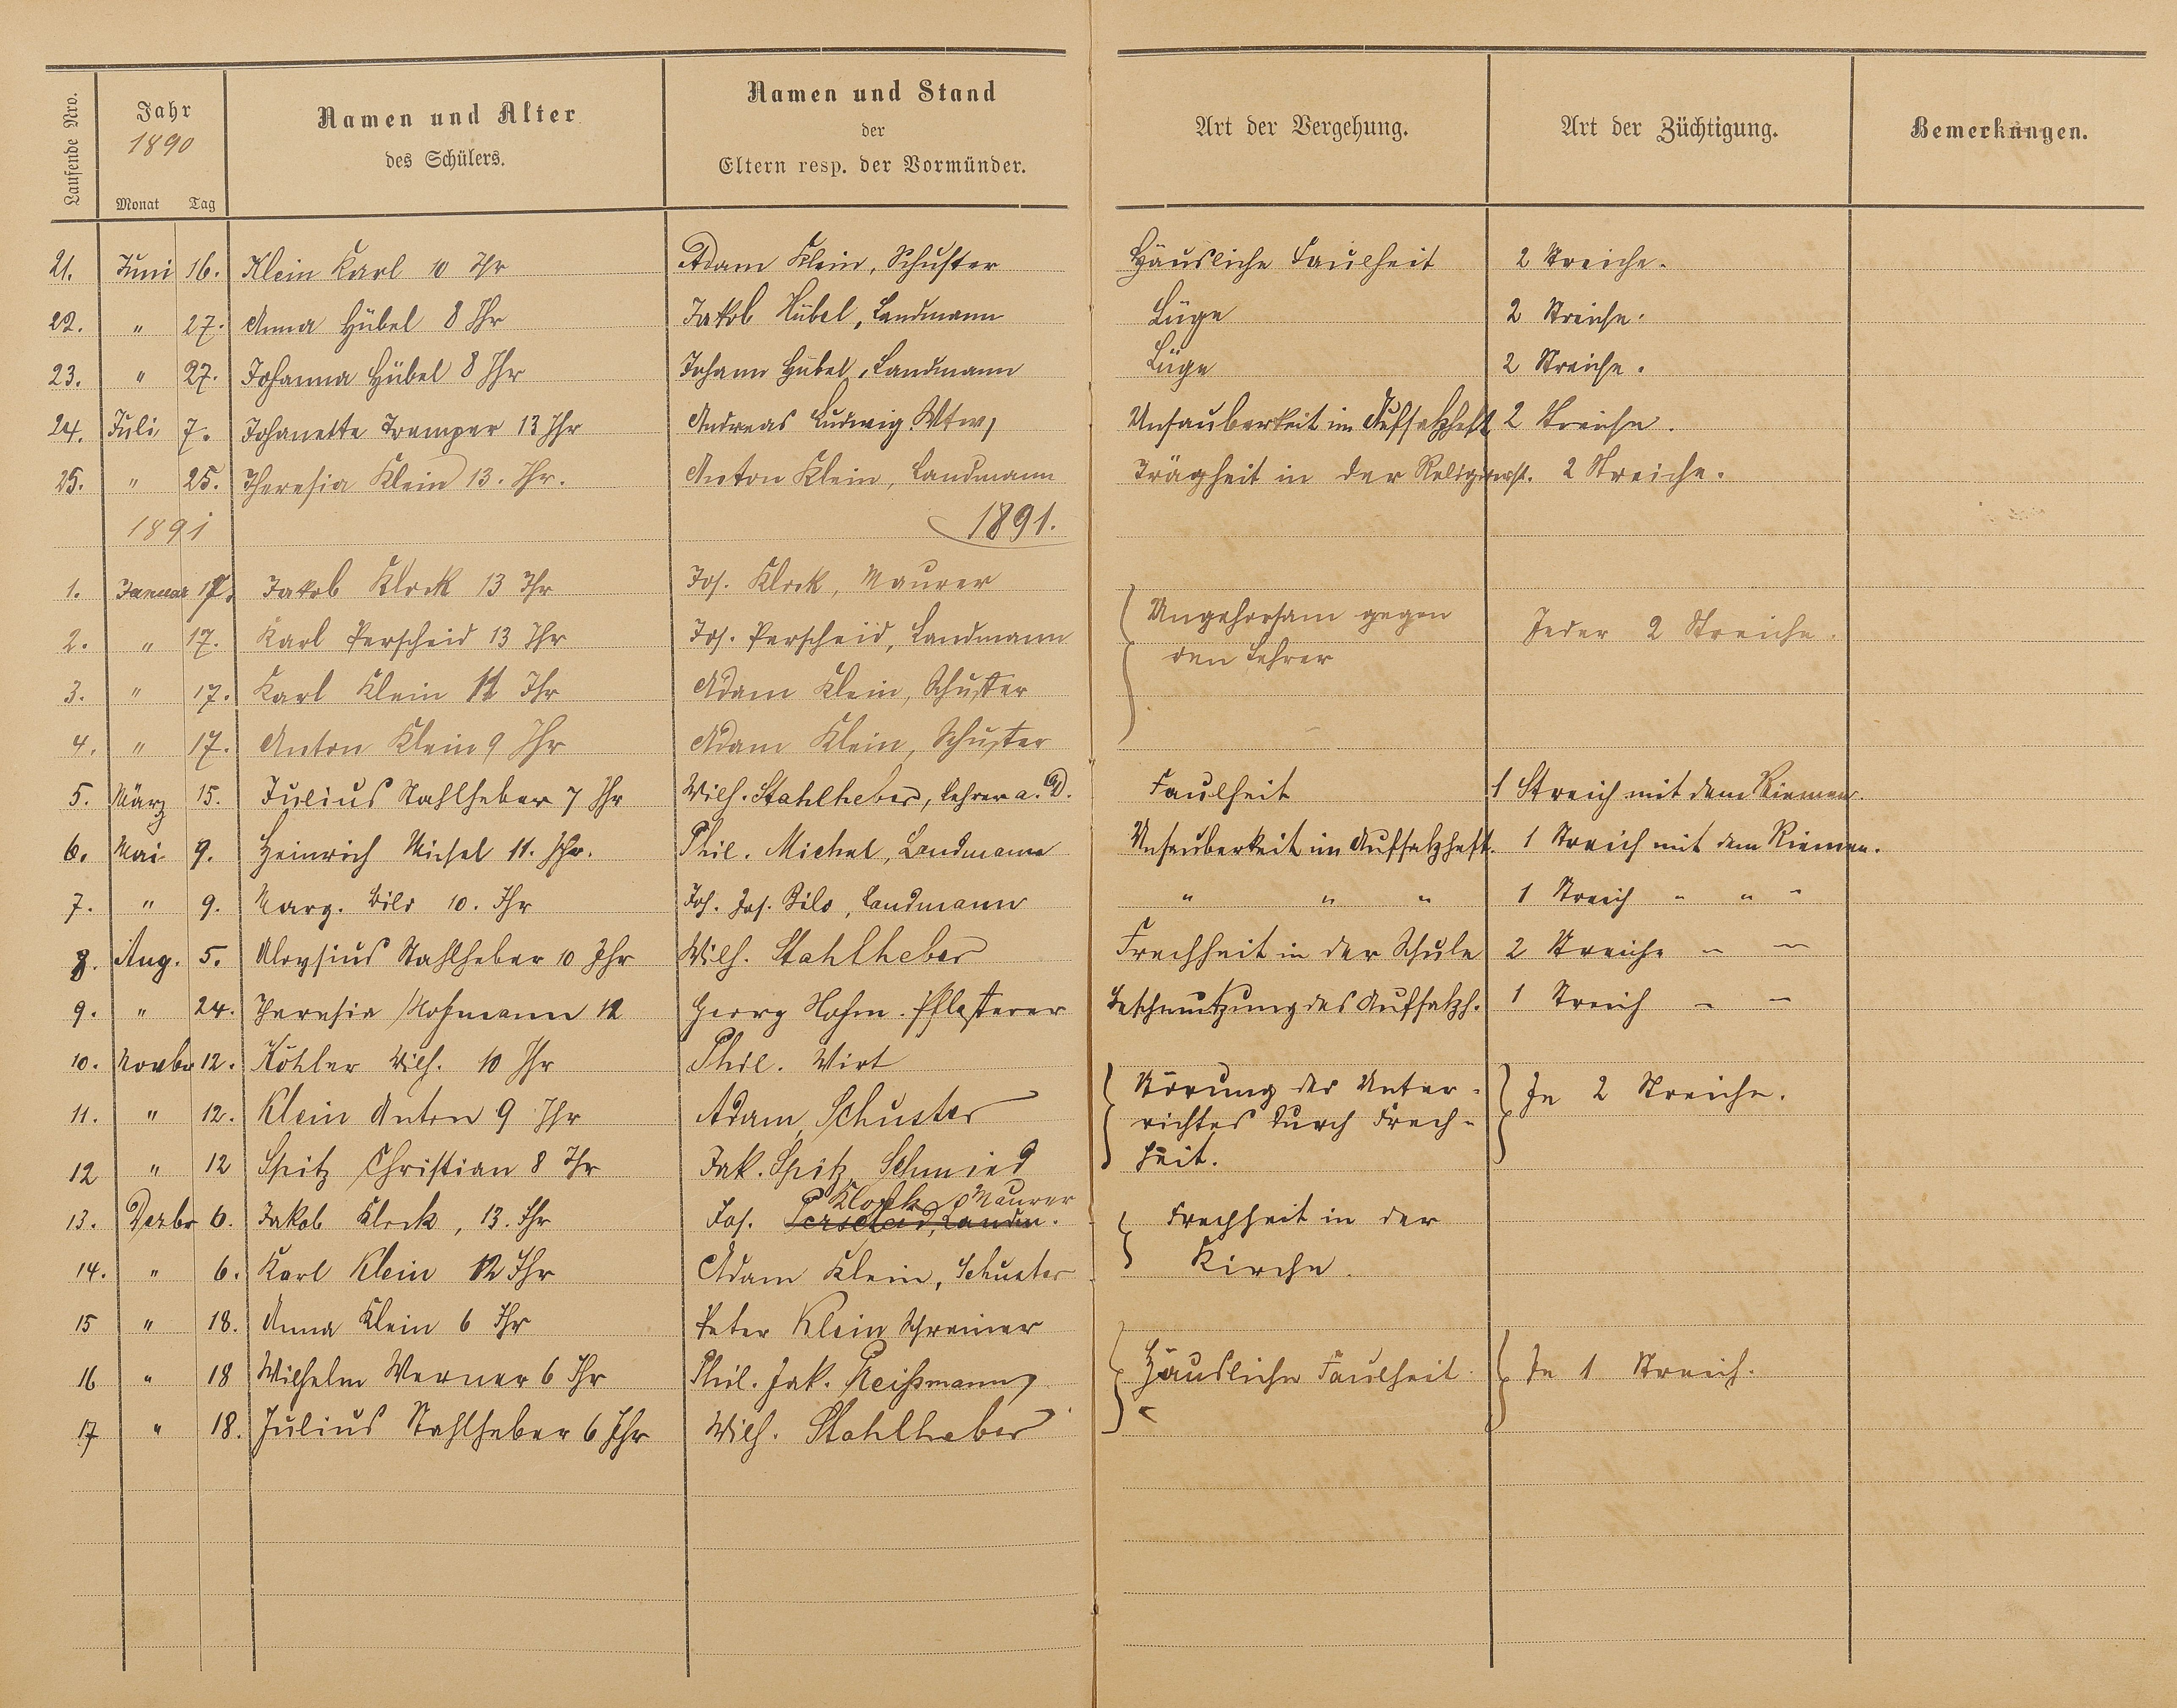 Laufende Nro.
Jahr
1890
Monat Tag
Namen und Alter
des Schülers.
Namen und Stand
der
Eltern resp. der Vormünder.
Art der Vergehung.
Art der Züchtigung.
Bemerkungen.
21. Juni 16. Klein Karl 10 Jhr Adam Klein, Schuster Häusliche Faulheit 2 Streiche.
22. " 27. Anna Hübel 8 Jhr Jakob Hübel, Landmann Lüge 2 Streiche.
23. " 27. Johanna Hübel 8 Jhr Johann Hübel, Landmann Lüge 2 Streiche.
24. Juli 7. Johanette Tramper 13 Jhr Andreas Ludwig Wtw, Unsauberkeit im Aufsatzheft 2 Streiche.
25. " 25. Theresia Klein 13. Jhr. Anton Klein, Landmann Trägheit in der 2 Streiche.
1891 1891.
1. Januar 17. Jakob Klock 13 Jhr Jos. Klock, Maurer
2. " 17. Karl Perscheid 13 Jhr Jos. Perscheid, Landmann
3. " 17. Karl Klein 12 Jhr Adam Klein, Schuster
4. " 17. Anton Klein 9 Jhr Adam Klein, Schuster
Ungehorsam gegen
den Lehrer
Jeder 2 Streiche.
5. März 15. Julius Stahlheber 7 Jhr Wilh. Stahlheber, Lehrer a. D. Faulheit 1 Streich mit dem Riemen.
6. Mai 9. Heinrich Michel 11. Jhr. Phil. Michel, Landmann Unsauberkeit im Aufsatzheft. 1 Streich mit dem Riemen.
7. " 9. Marg. Bild 10. Jhr Joh. Jos. Bild, Landmann " " " 1 Streich " " "
8. Aug. 5. Aloysius Stahlheber 10 Jhr Wilh. Stahlheber Frechheit in der Schule 2 Streiche " "
9. " 24. Theresia Hofmann 12 Georg Hofm. Pflasterer Beschmutzung des Aufsatzh. 1 Streich " "
10. Novbr 12. Köhler Wilh. 10 Jhr Phil. Wirt
11. " 12. Klein Anton 9 Jhr Adam, Schuster
12 " 12 Spitz Christian 8 Jhr Jak. Spitz, Schmied
Störung des Unter-
richtes durch Frech-
heit.
Je 2 Streiche.
Klock, Maurer
13. Dezbr 6. Jakob Klock, 13. Jhr Jos. Perscheid, Landm.
14. " 6. Karl Klein 12 Jhr Adam Klein, Schuster
Frechheit in der
Kirche.
15 " 18. Anna Klein 6 Jhr Peter Klein Schreiner
16 " 18 Wilhelm Werner 6 Jhr Phil. Jak. Reißmann
17 " 18. Julius Stahlheber 6 Jhr Wilh. Stahlheber
Häusliche Faulheit. Je 1 Streich.